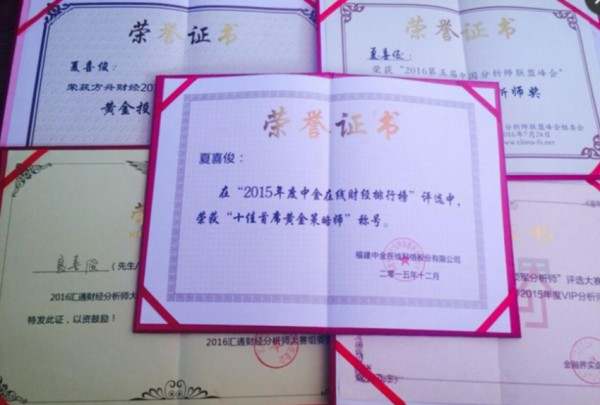 荣誉证书
夏喜俊：
荣获方舟财经20
黄金投
荣誉证书
夏喜俊：
荣获“2016第五届中国分析师联盟峰会”
析师奖
分析师联盟峰会组委会
荣誉证书
夏喜俊：
在“2015年度中金在线财经排行榜”评选中，
荣获“十佳首席黄金策略师”称号。
福建中金在线网络股份有限公司
二零一五年十二月
夏喜俊（先生/
2016汇通财经分析师大
特发此证，以资鼓励！
2016汇通财经分析师大赛组委
军分析师”评选大赛
2015年度VIP分析师
金融界实盘